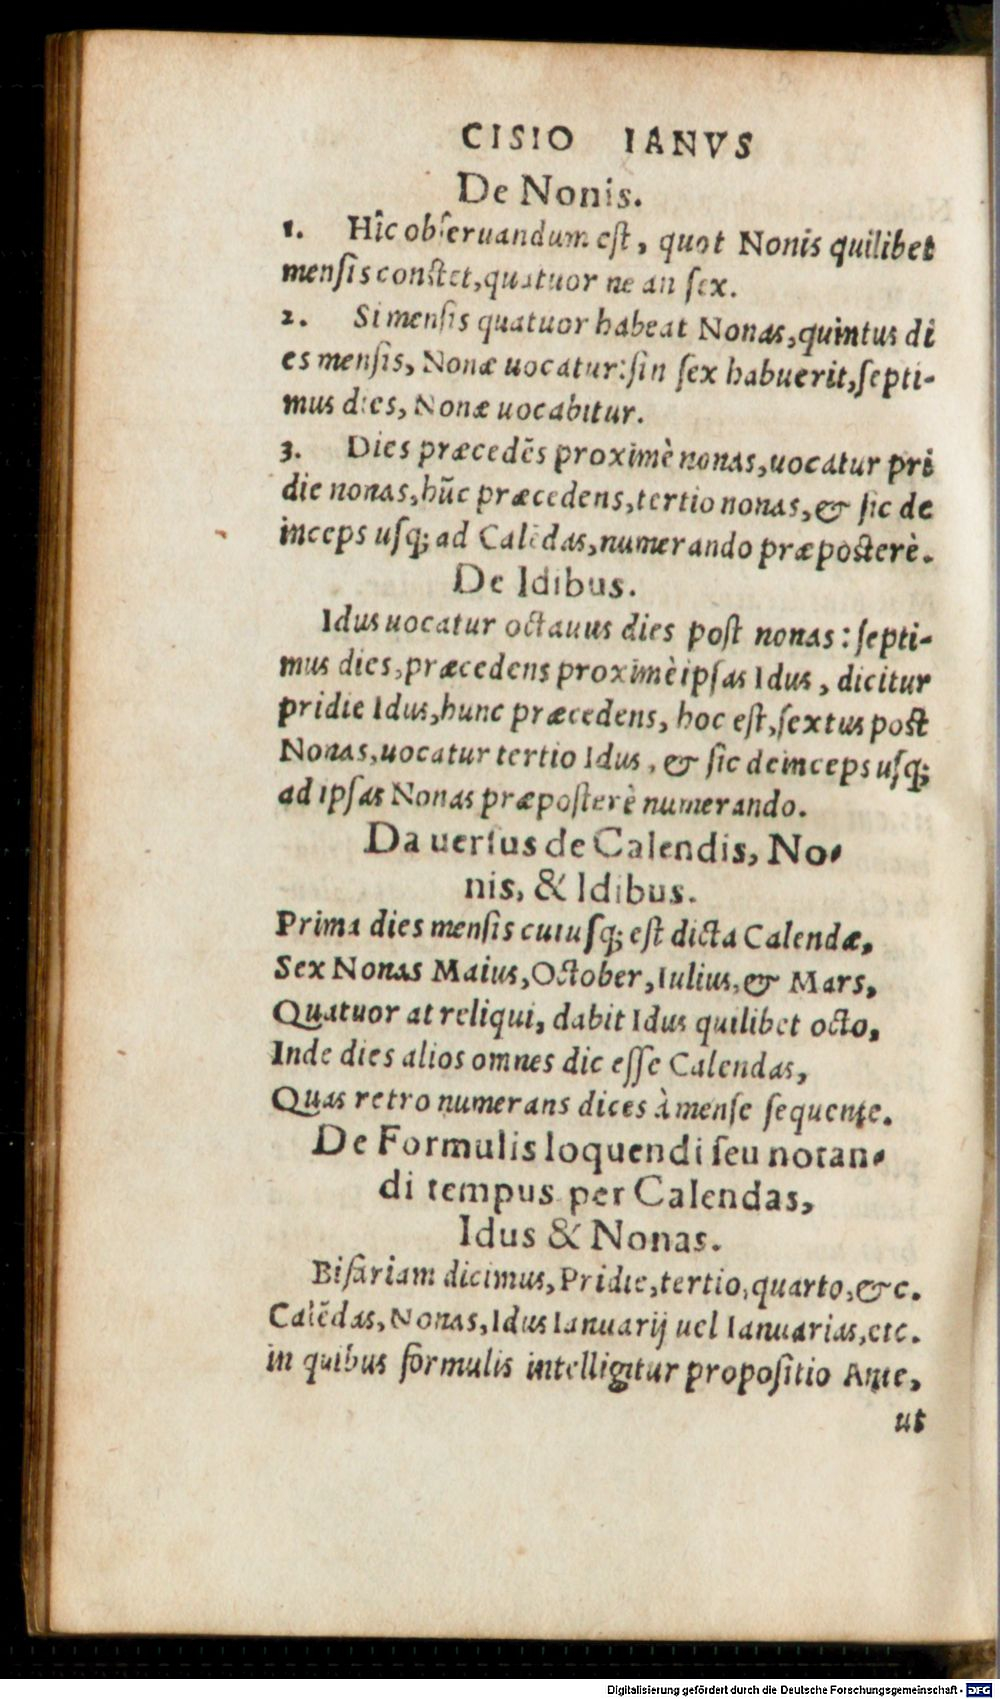 CISIO IANVS
De Nonis.
1. Hîc obseruandum est, quot Nonis quilibet
mensis constet, quatuor ne an sex.
2. Si mensis quatuor habeat Nonas, quintus di
es mensis, Nonæ uocatur: sin sex habuerit, septi-
mus dies, Nonæ uocabitur.
3. Dies præcedēs proximè nonas, uocatur pri
die nonas, hūc præcedens, tertio nonas, & sic de
inceps usq; ad Calēdas, numerando præposterè.
De Idibus.
Idus uocatur octauus dies post nonas: septi-
mus dies, præcedens proximè ipsas Idus, dicitur
pridie Idus, hunc præcedens, hoc est, sextus post
Nonas, uocatur tertio Idus, & sic deinceps usq;
ad ipsas Nonas præposterè numerando.
Da uersus de Calendis, No-
nis, & Idibus.
Prima dies mensis cuiusq; est dicta Calendæ,
Sex Nonas Maius, October, Iulius, & Mars,
Quatuor at reliqui, dabit Idus quilibet octo,
Inde dies alios omnes dic esse Calendas,
Quas retro numerans dices à mense sequente.
De Formulis loquendi seu notan-
di tempus per Calendas,
Idus & Nonas.
Bifariam dicimus, Pridie, tertio, quarto, &c.
Calēdas, Nonas, Idus Ianuarij uel Ianuarias, etc.
in quibus formulis intelligitur propositio Ante,
ut
Digitalisierung gefördert durch die Deutsche Forschungsgemeinschaft - DFG